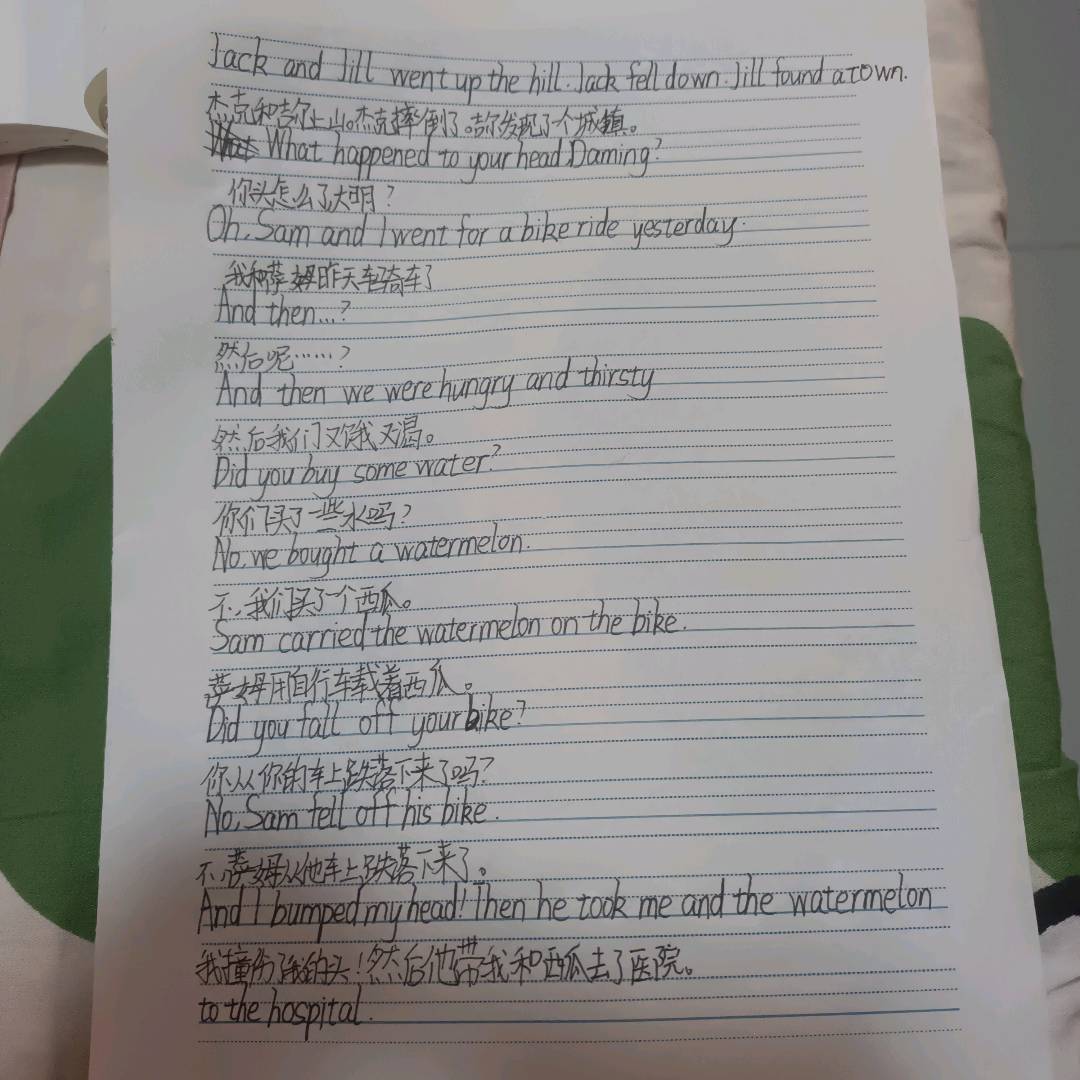 Jack and Jill went up the hill. Jack fell down. Jill found a town.
杰克和吉尔上山。杰克摔倒了。吉尔发现了一个城镇。
What happened to your head, Daming?
你头怎么了大明？
Oh, Sam and I went for a bike ride yesterday.
我和萨姆昨天骑车了
And then...?
然后呢……？
And then we were hungry and thirsty
然后我们又饿又渴。
Did you buy some water?
你们买了一些水吗？
No, we bought a watermelon.
不,我们买了一个西瓜。
Sam carried the watermelon on the bike.
萨姆用自行车载着西瓜。
Did you fall off your bike?
你从你的车上跌落下来了吗？
No, Sam fell off his bike.
不,萨姆从他车上跌落下来了。
And I bumped my head! Then he took me and the watermelon
我撞伤了我的头！然后他带我和西瓜去了医院。
to the hospital.